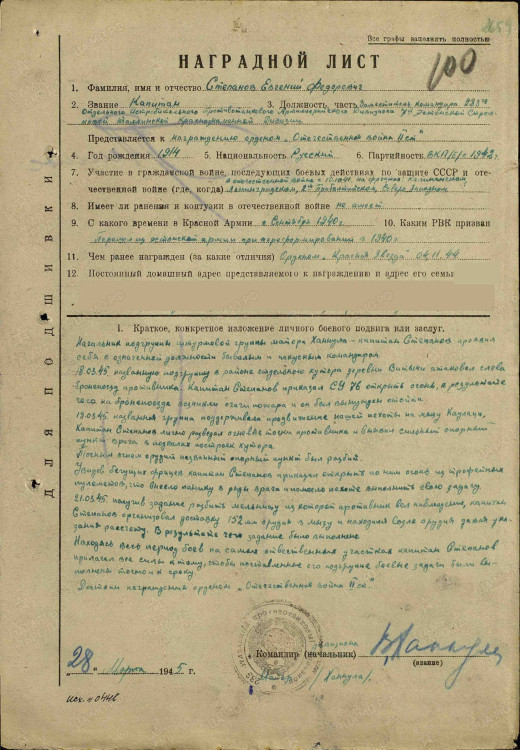 Все графы заполнять полностью
2659
100
НАГРАДНОЙ ЛИСТ
1. Фамилия, имя и отчество Степанов Евгений Федорович
2. Звание Капитан 3. Должность, часть Заместитель Командира 283го
Отдельного Истребительного Противотанкового Артиллерийского Дивизиона
Таллинской Краснознаменной Дивизии
Представляется к награждению орденом „Отечественная война II ст."
4. Год рождения 1914 5. Национальность Русский 6. Партийность ВКП/б/с 1942г.
7. Участие в гражданской войне, последующих боевых действиях по защите СССР и оте-
чественной войне (где, когда) в отечественной войне с 10.1941 на фронтах Калининском,
Ленинградском, 2ом Прибалтийском,
8. Имеет ли ранения и контузии в отечественной войне не имеет
9. С какого времени в Красной Армии с Сентября 1940г. 10. Каким РВК призван
из эстонской армии при переформировании в 1940г
11. Чем ранее награжден (за какие отличия) Орденом „Красная Звезда" 04.11.44
12. Постоянный домашний адрес представляемого к награждению и адрес его семьи
ДЛЯ ПОДШИВКИ
I. Краткое, конкретное изложение личного боевого подвига или заслуг.
Начальник подгруппы штурмовой группы майора Ханнула - капитан Степанов проявил
себя в означенной должности боевым и искусным командиром.
18.03.45 названную подгруппу в районе отдельного хутора деревни атаковал слева
бронепоезд противника. Капитан Степанов приказал СУ 76 открыть огонь, в результате
чего на бронепоезде возникли очаги пожара и он был вынужден отойти.
19.03.45 названная группа поддерживала продвижение нашей пехоты на мызу
Капитан Степанов лично разведал огневые точки противника и выявил сильный опорный
пункт врага в подвалах построек хутора.
Точным огнем орудий названный опорный пункт был разбит.
Увидев бегущих фрицев капитан Степанов приказал открыть по ним огонь из трофейных
пулеметов, что внесло панику в ряды врага и помогло пехоте выполнить свою задачу.
21.03.45 получив задание разбить мельницу из которой противник вел наблюдение, капитан
Степанов организовал доставку 152 мм орудия и находился возле орудия давая ука-
зания расчету. В результате чего задание было выполнено.
Находясь весь период боев на самом ответственном участке капитан Степанов
прилагал все силы к тому, чтобы поставленные его подгруппе боевые задачи были вы-
полнены точно и в срок.
Достоин награждения орденом „Отечественная война II ст."
Командир (начальник)
(звание)
Майор /Ханнула/
„28" Марта 1945 г.